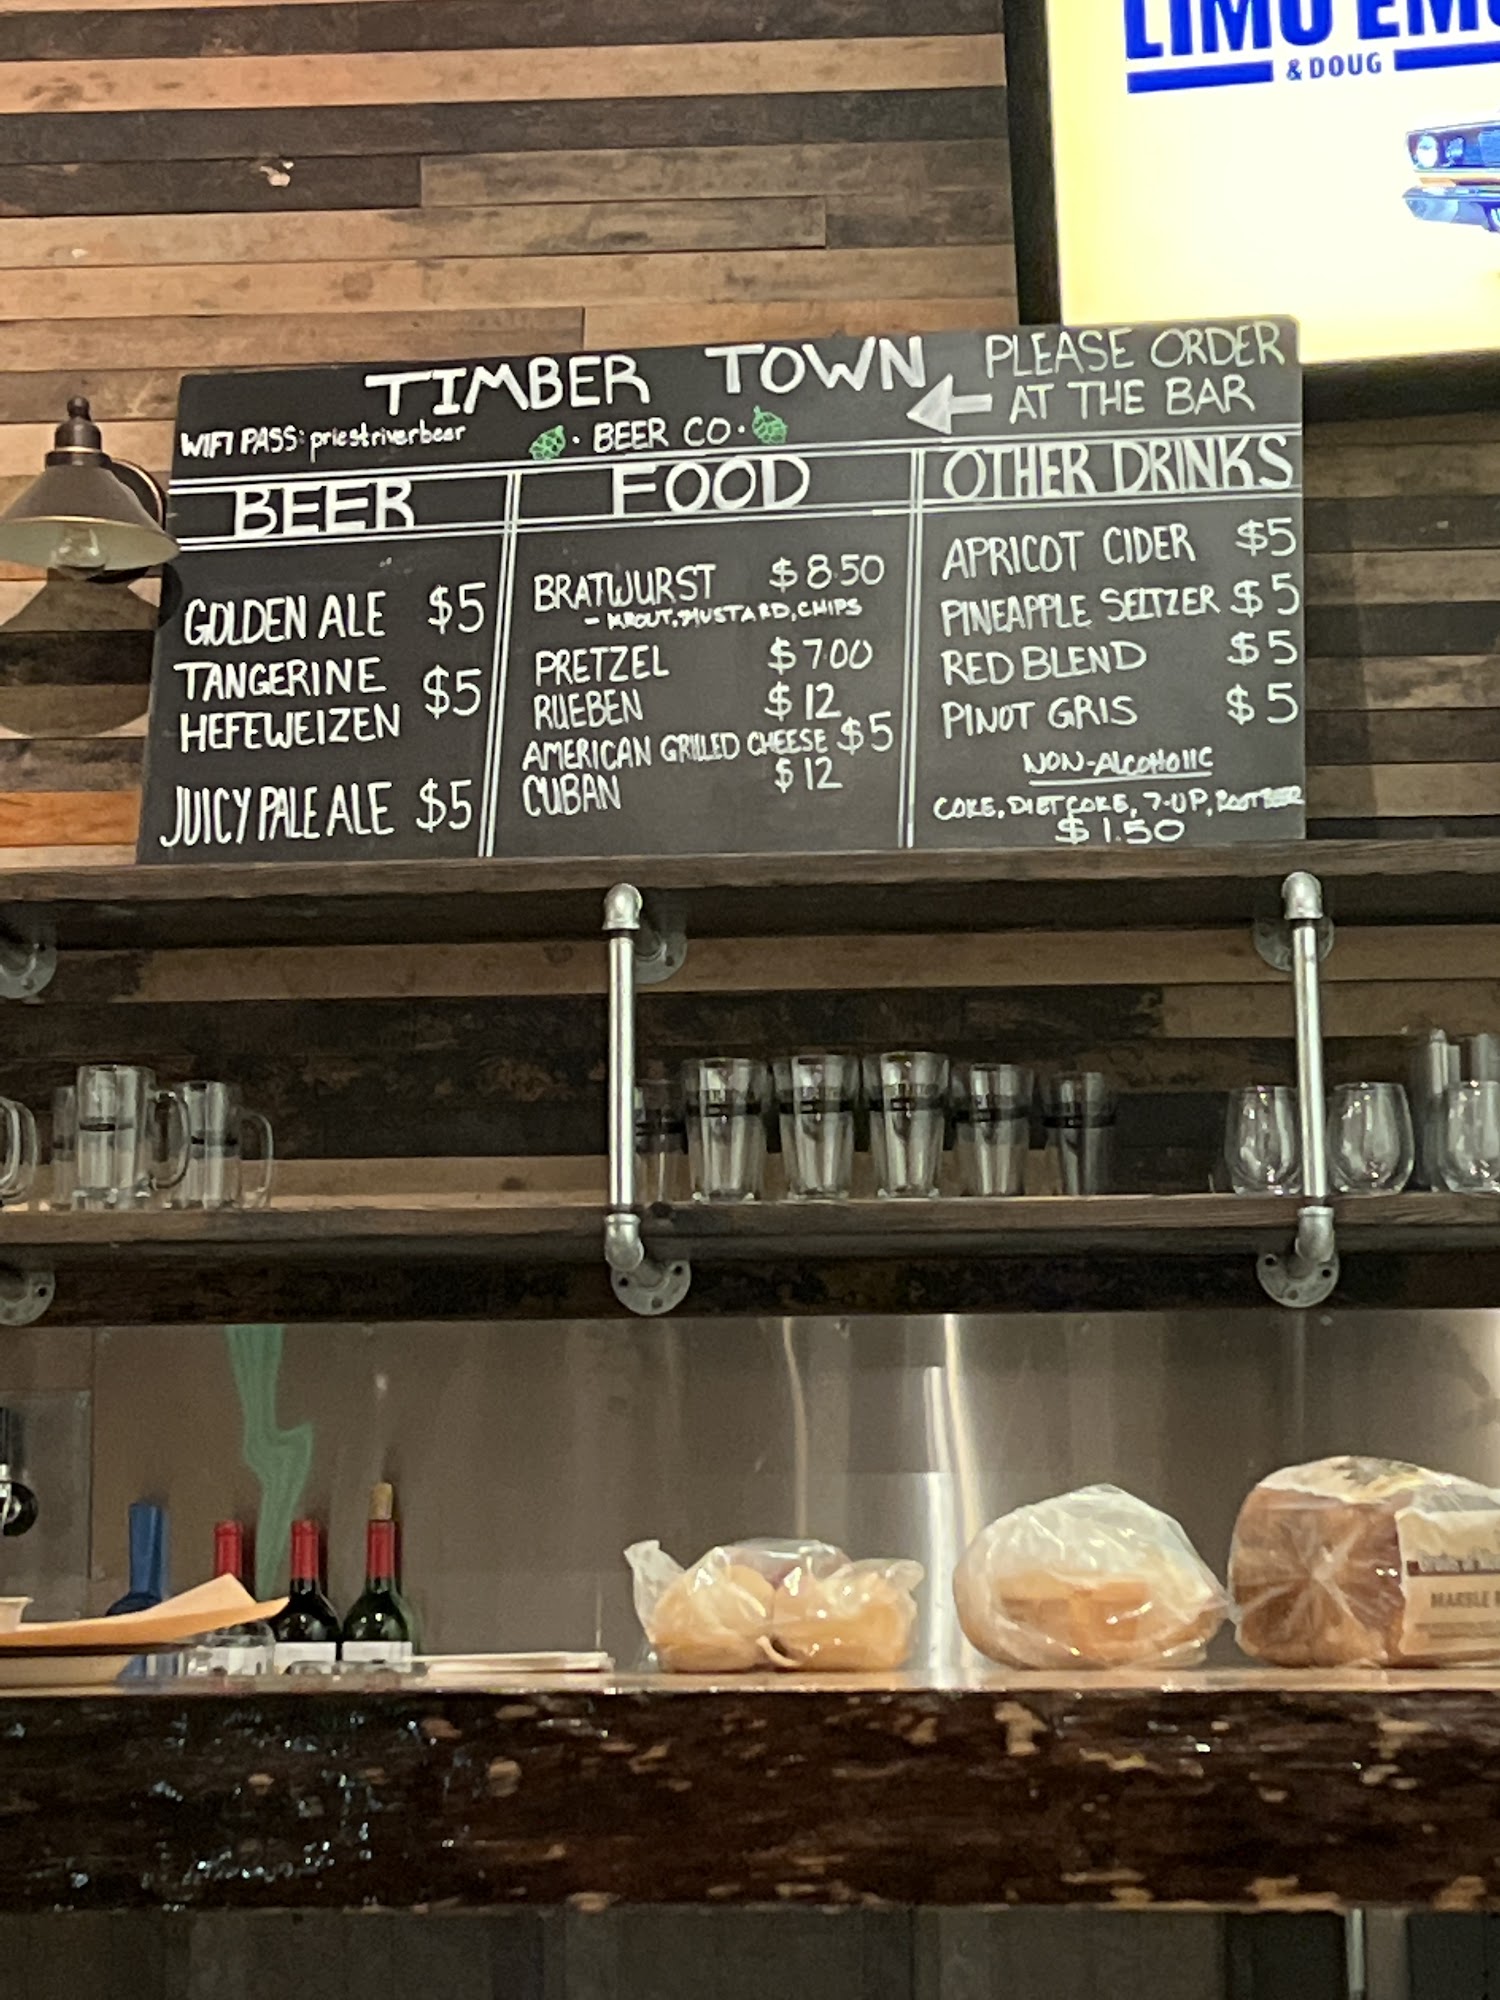 LIMU EMU
& DOUG
TIMBER TOWN
PLEASE ORDER
AT THE BAR
WIFI PASS: priestriverbeer
· BEER CO ·
BEER
GOLDEN ALE $5
TANGERINE
HEFEWEIZEN $5
JUICY PALE ALE $5
FOOD
BRATWURST $8.50
- KROUT, MUSTARD, CHIPS
PRETZEL $7.00
RUEBEN $12
AMERICAN GRILLED CHEESE $5
CUBAN $12
OTHER DRINKS
APRICOT CIDER $5
PINEAPPLE SELTZER $5
RED BLEND $5
PINOT GRIS $5
NON-ALCOHOLIC
COKE, DIET COKE, 7-UP, ROOT BEER
$1.50
MARBLE